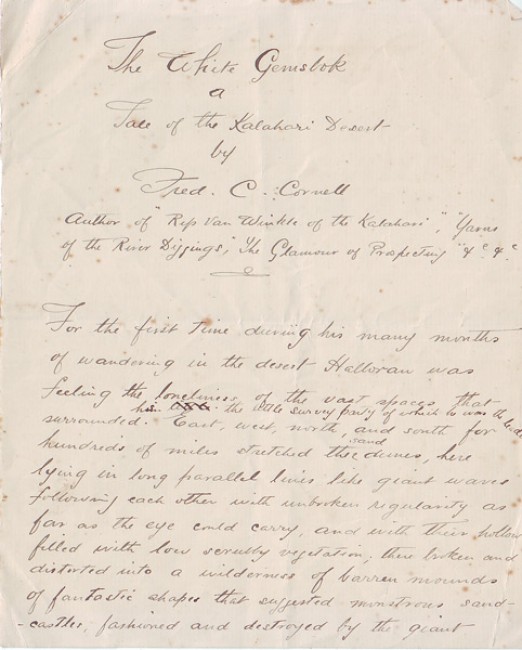 The White Gemsbok
a
Tale of the Kalahari Desert
by
Fred. C. Cornell
Author of "Rip Van Winkle of the Kalahari", "Yarns
of the River Diggings", "The Glamour of Prospecting" &c &c.
For the first time during his many months
of wandering in the desert Halloran was
feeling the loneliness of the vast spaces that
his the little survey party of which he was the
surrounded. East, west, north, and south for
hundreds of miles stretched the sand dunes, here
lying in long parallel lines like giant waves
following each other with unbroken regularity as
far as the eye could carry, and with their hollows
filled with low scrubby vegetation; there broken and
distorted into a wilderness of barren mounds
of fantastic shapes that suggested monstrous sand-
-castles, fashioned and destroyed by the giant